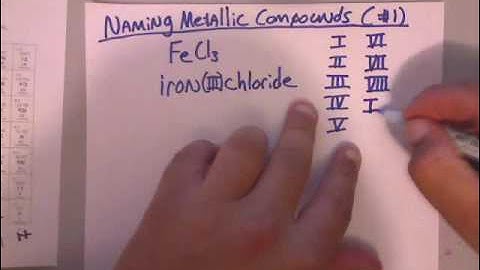 NAMING METALLIC COMPOUNDS (#1)
FeCl3
iron(III)chloride
I
II
III
IV
V
VI
VII
VIII
I